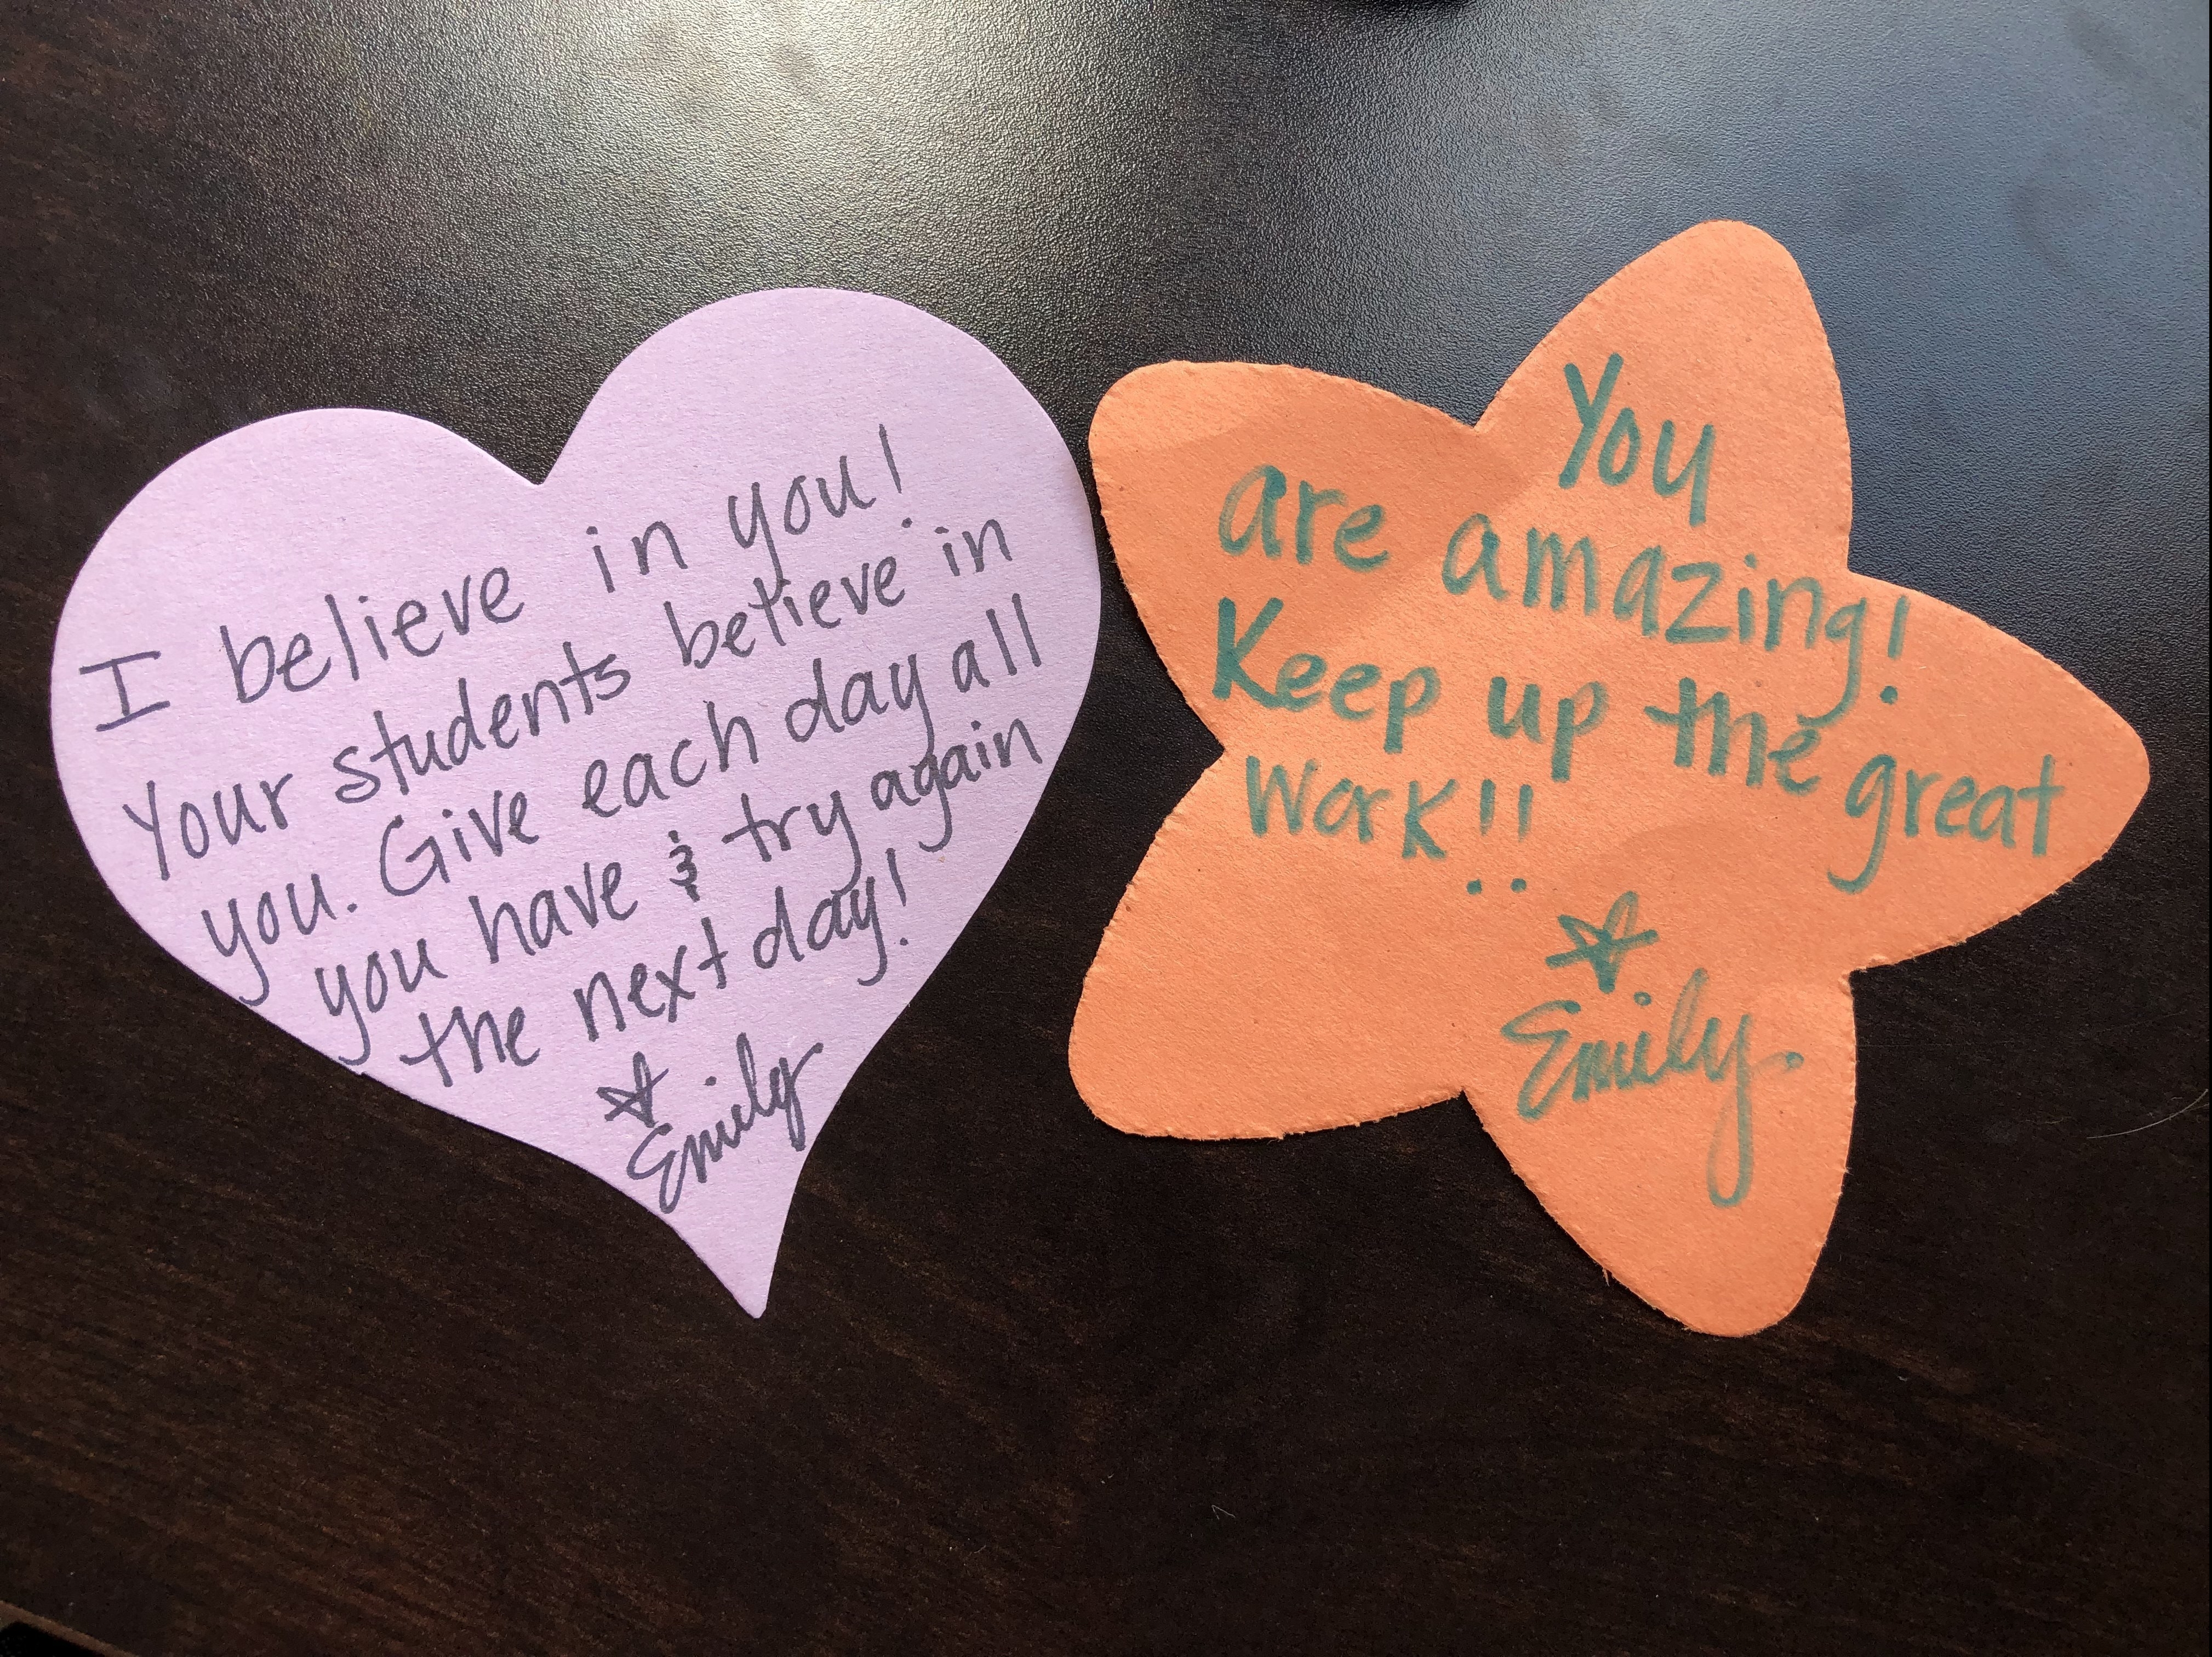 I believe in you!
Your students believe in
you. Give each day all
you have & try again
the next day!
Emily
You
are amazing!
Keep up the great
work!!
Emily.